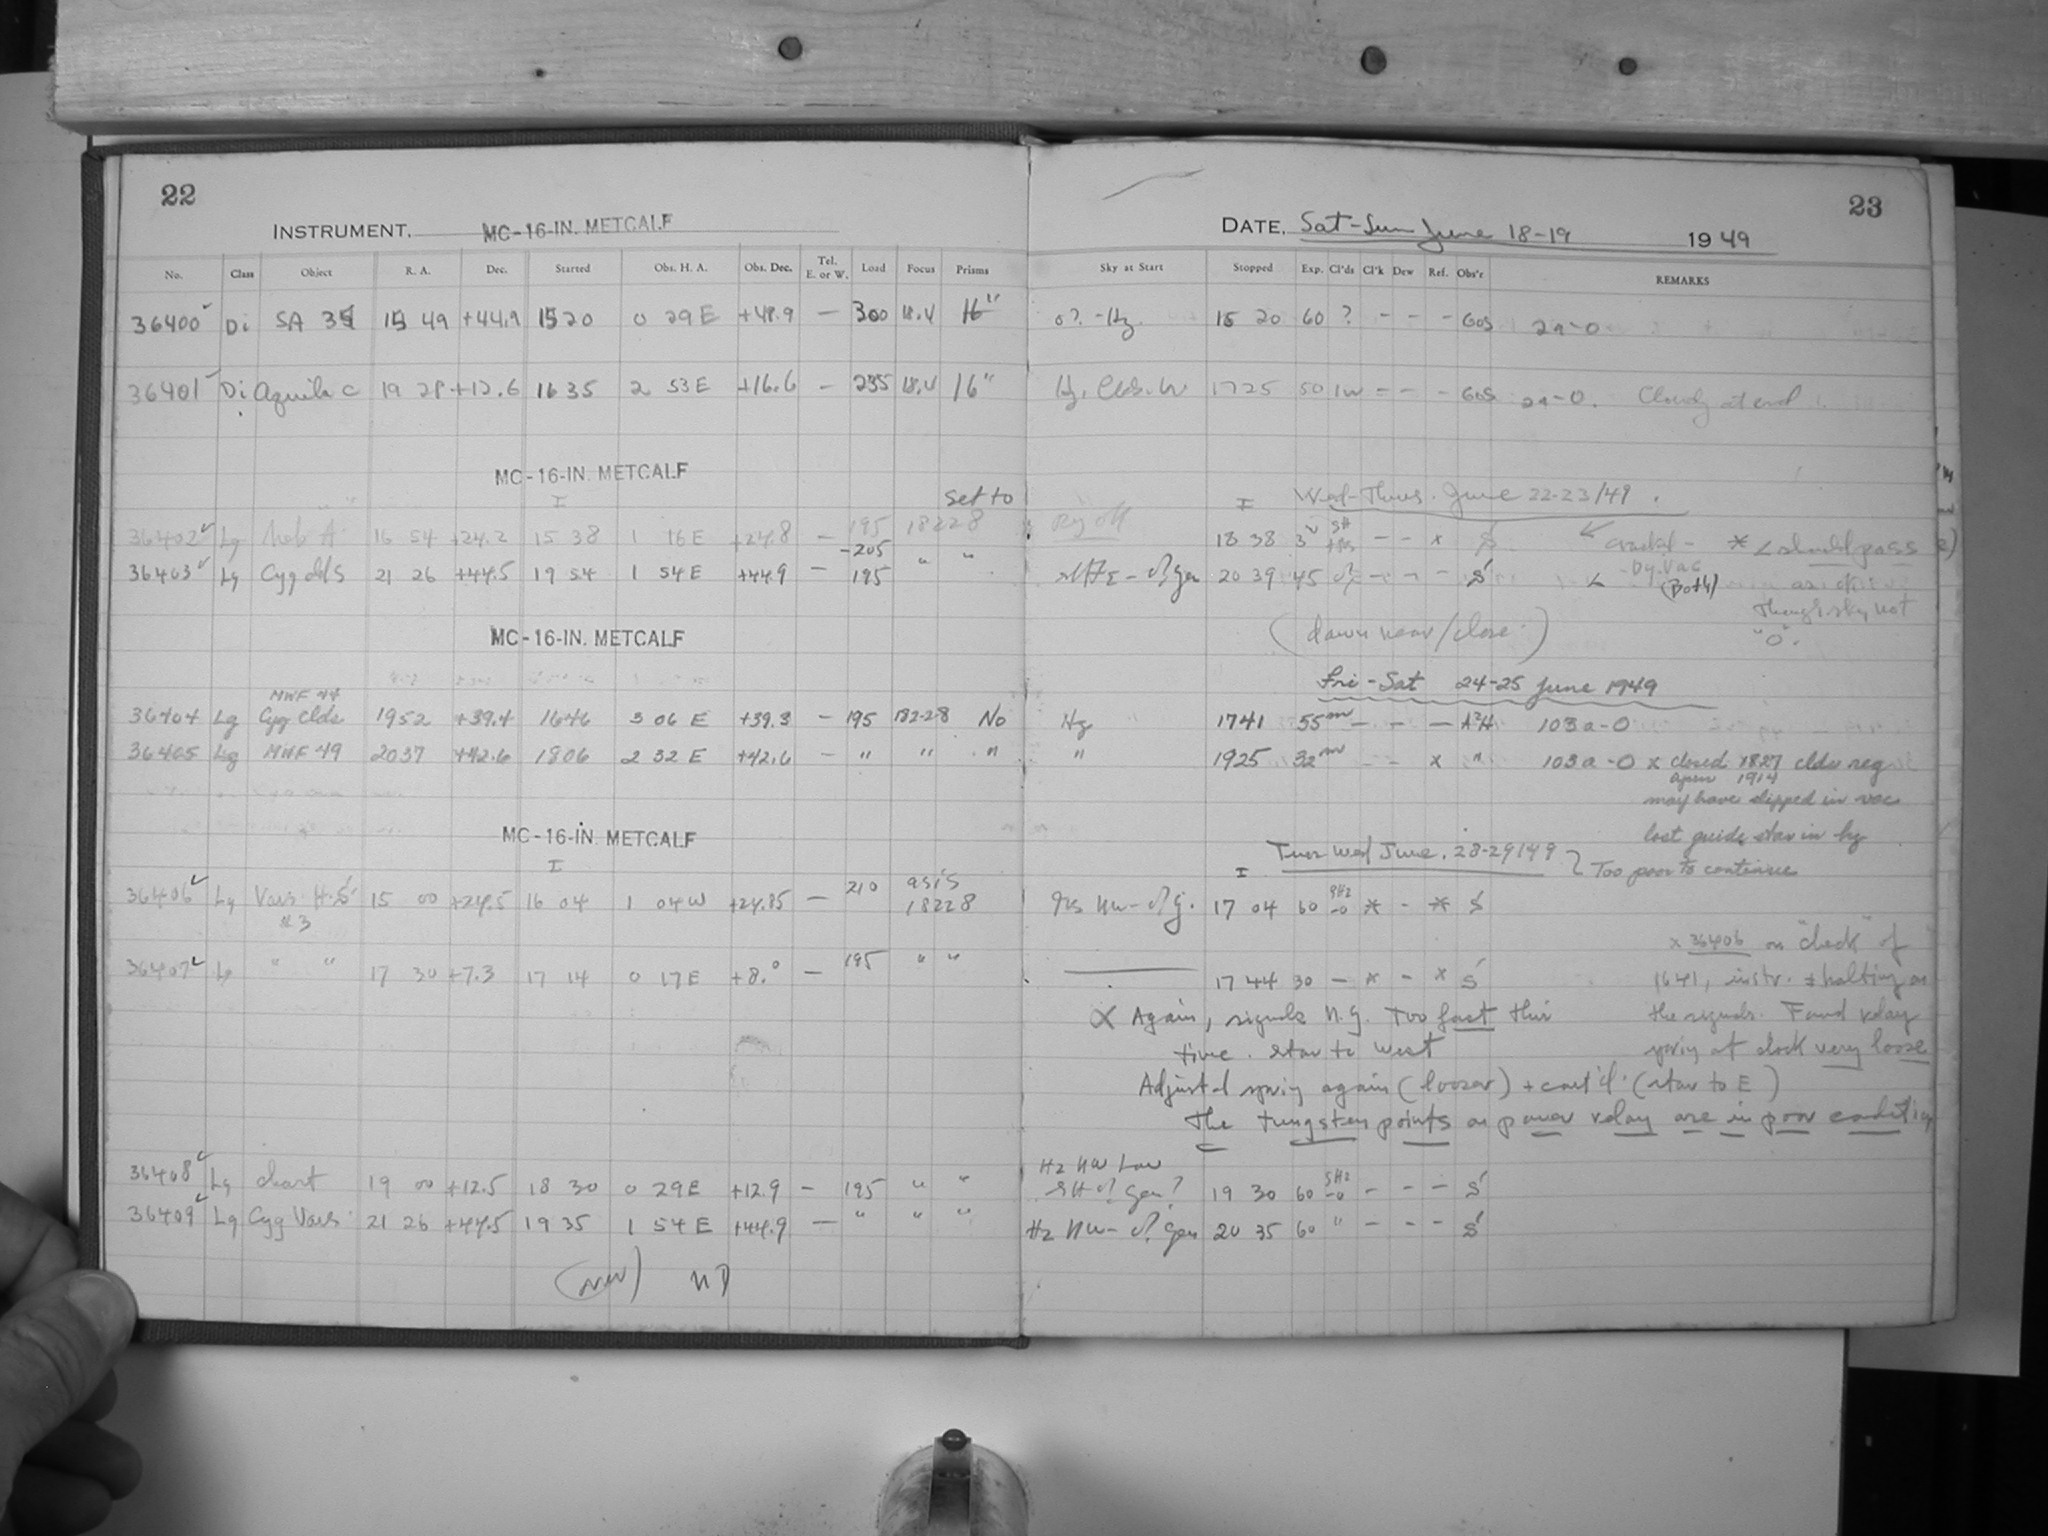 22
INSTRUMENT, MC-16-IN. METCALF
No. Class Object R. A. Dec. Started Obs. H. A. Obs. Dec. Tel. E. or W. Load Focus Prisms
36400 Di SA 35 15 49 +44.9 1520 0 29 E +48.9 — 300 18.4 16"
36401 Di Aquila C 19 28 +12.6 16 35 2 53 E +16.6 — 235 18.4 16"
MC-16-IN. METCALF
I
set to
36402 Lg 16 54 +24.2 15 38 1 16 E +24.8 — 195 18228
-205
36403 Lg Cyg clds 21 26 +44.5 19 54 1 54 E +44.9 — 195 " "
MC-16-IN. METCALF
MWF 44
36404 Lg Cyg Clds 1952 +39.4 1646 3 06 E +39.3 — 195 182-28 No
36405 Lg MWF 49 2037 +42.6 1806 2 32 E +42.6 — " " "
MC-16-IN. METCALF
I
as is
36406 Lg Vars H.S. 15 00 +24.5 16 04 1 04 W +24.85 — 210 18228
#3
36407 Lg " " 17 30 +7.3 17 14 0 17 E +8.0 — 195 " "
36408 Lg chart 19 00 +12.5 18 30 0 29 E +12.9 — 195 " "
36409 Lg Cyg Vars 21 26 +44.5 19 35 1 54 E +44.9 — " " "
23
DATE, Sat-Sun June 18-19 1949
Sky at Start Stopped Exp. Cl'ds Cl'k Dew Ref. Obs'r REMARKS
0? - Hz. 15 20 60 ? - - - Gos 2a-O
Hz, Clds. W 1725 50 1w = - - Gos 2a-O. Cloudy at end
I Wed-Thurs. June 22-23/49.
18 38 3 - - x S cracked - * < should pass
20 39 45 - - - S (Both) as
though sky not
(dawn near/close.) "O".
Fri-Sat 24-25 June 1949
Hz 1741 55m - - - A2H 103a-O
" 1925 32m - - x " 103a-O x closed 1827 clds neg
open 1914
may have slipped in vac
lost guide star in hz
I Tues-Wed June. 28-29/49 Too poor to continue
17 04 60 * - * S
x 36406 on "check" of
17 44 30 - * - x S 1641, instr. halting on
the signals. Found relay
spring at clock very loose
Again, signals N.G. Too fast this
time. star to west
Adjusted spring again (looser) + cont'd. (star to E)
The tungsten points on power relay are in poor condition
Hz NW Low
19 30 60 - - - S
Hz NW- 20 35 60 " - - - S